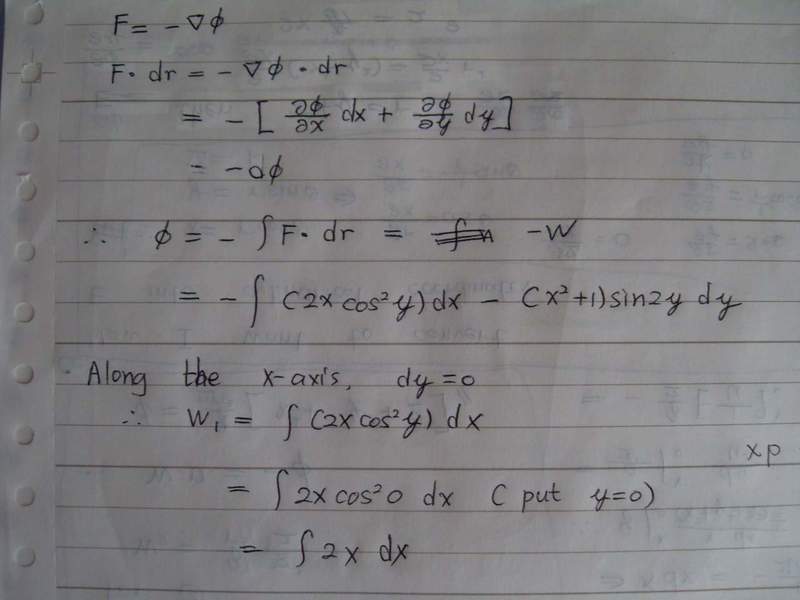 F = -∇φ
F· dr = -∇φ · dr
= - [ ∂φ/∂x dx + ∂φ/∂y dy ]
= -dφ
∴ φ = - ∫ F· dr = -W
= - ∫ (2x cos²y) dx - (x²+1) sin2y dy
Along the x-axis, dy = 0
∴ W₁ = ∫ (2x cos²y) dx
xp
= ∫ 2x cos²0 dx ( put y=0)
= ∫ 2x dx